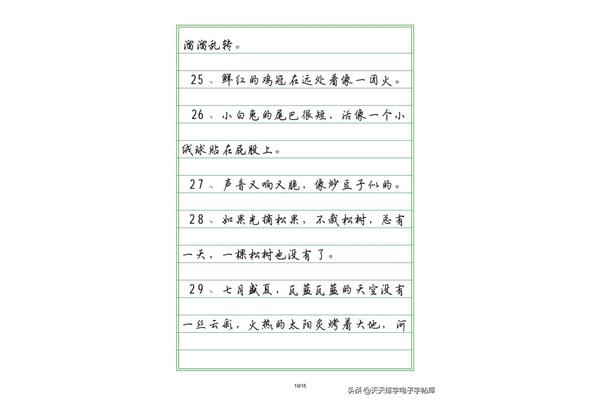 溜溜乱转。
25、鲜红的鸡冠在远处看像一团火。
26、小白兔的尾巴很短，活像一个小
绒球贴在屁股上。
27、声音又响又脆，像炒豆子似的。
28、如果光摘松果，不栽松树，总有
一天，一棵松树也没有了。
29、七月盛夏，瓦蓝瓦蓝的天空没有
一丝云彩，火热的太阳炙烤着大地，河
10/15
头条 @天天练字电子字帖库